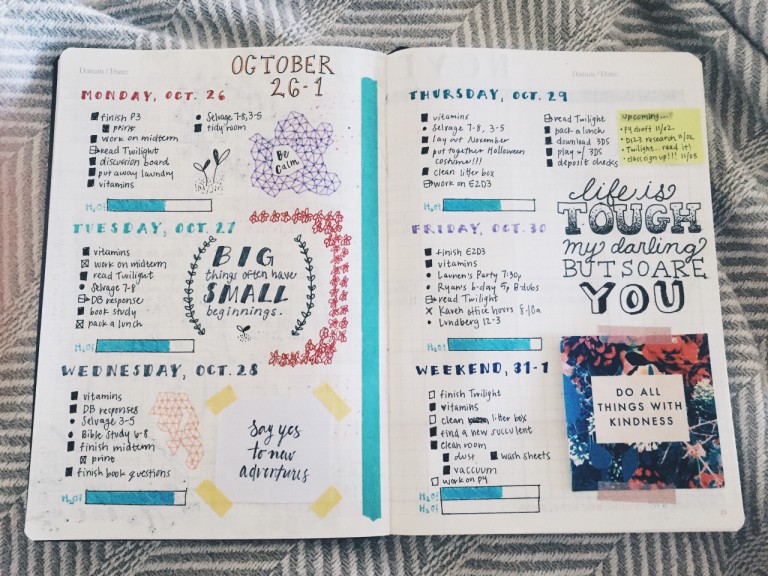 Datum / Date:
OCTOBER
26-1
MONDAY, OCT. 26
finish P3
print
work on midterm
read Twilight
discussion board
put away laundry
vitamins
Selvage 7-8, 3-5
tidy room
Be
Calm
H₂O!
TUESDAY, OCT. 27
vitamins
work on midterm
read Twilight
Selvage 7-8
DB response
book study
pack a lunch
BIG
things often have
SMALL
beginnings.
H₂O!
WEDNESDAY, OCT. 28
vitamins
DB responses
Selvage 3-5
Bible Study 6-8
finish midterm
print
finish book questions
say yes
to new
adventures
H₂O!
Datum / Date:
THURSDAY, OCT. 29
vitamins
Selvage 7-8, 3-5
lay out November
put together Halloween
costume!!!
clean litter box
work on E2D3
read Twilight
pack a lunch
download 3DS
play w/ 3DS
deposit checks
upcoming...
P4 draft 11/02
D123 research 11/02
Twilight... read it!
class sign up!!! 11/03
H₂O!
life is
TOUGH
my darling
BUT SO ARE
YOU
FRIDAY, OCT. 30
finish E2D3
vitamins
Lauren's Party 7:30p
Ryan's b-day 5p B-dubs
read Twilight
Karen office hours 8-10a
Lundberg 12-3
H₂O!
WEEKEND, 31-1
finish Twilight
vitamins
clean litter box
find a new succulent
clean room
dust
wash sheets
vaccum
work on P4
H₂O!
H₂O!
DO ALL
THINGS WITH
KINDNESS